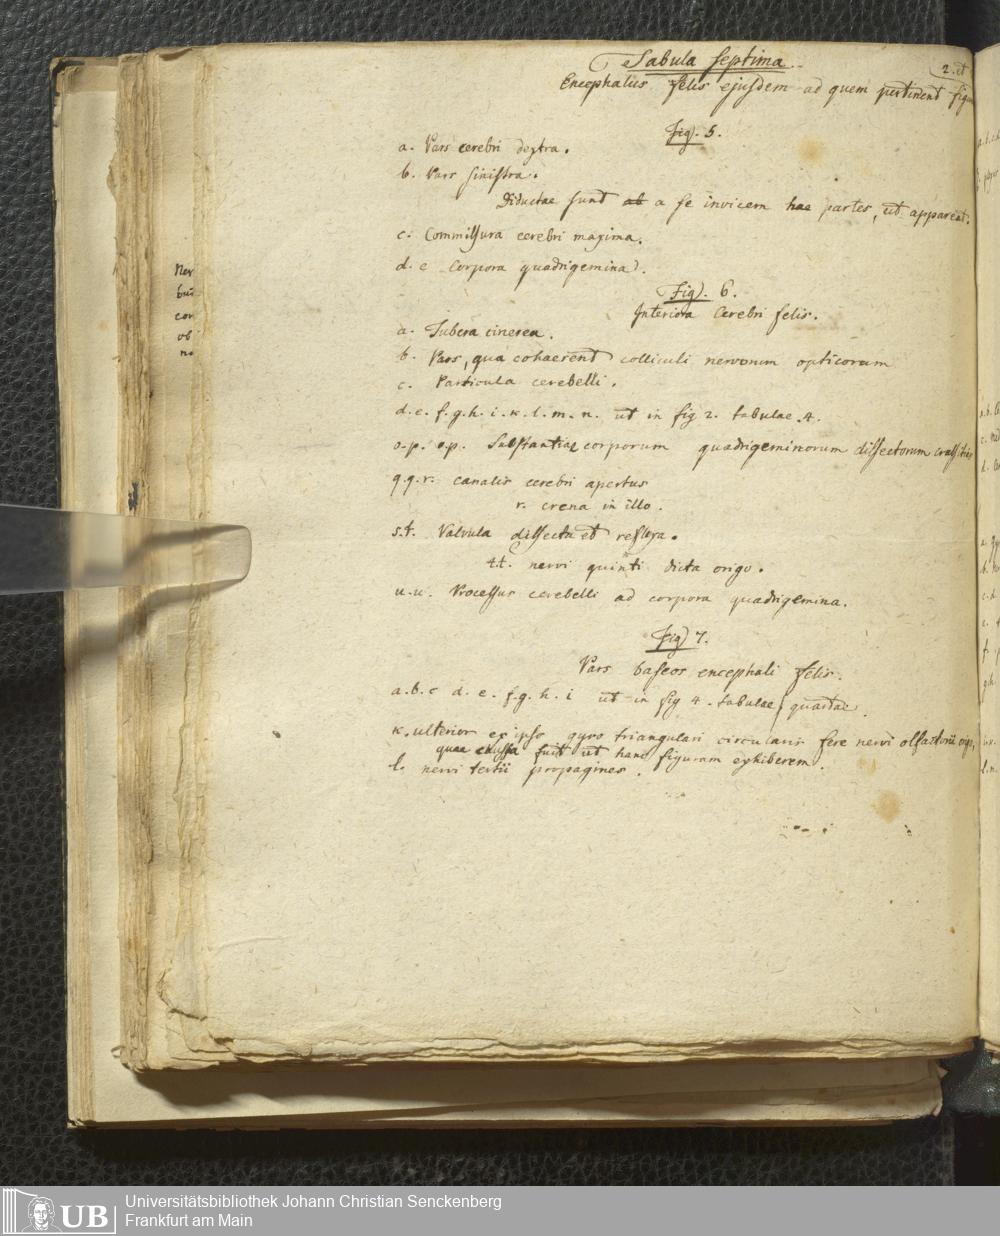 Tabula septima
2. et
Encephalus felis ejusdem ad quem pertinent figu
Fig. 5.
a. Pars cerebri dextra.
b. Pars sinistra.
Diductae sunt ab a se invicem hae partes, ut appareat.
c. Commissura cerebri maxima.
d. e Corpora quadrigemina.
Fig. 6.
Interiora Cerebri felis.
a. Tubera cinerea.
b. Pars, qua cohaerent colliculi nervorum opticorum
c. Particula cerebelli.
d. e. f. g. h. i. k. l. m. n. ut in fig 2. tabulae 4.
o.p. o.p. Substantiae corporum quadrigeminorum dissectorum crassities
q.q.r. canalis cerebri apertus
r. crena in illo.
s.t. Valvula dissecta et reflexa.
t.t. nervi quinti dicta origo.
u.u. Processus cerebelli ad corpora quadrigemina.
Fig 7.
Pars baseos encephali felis.
a. b. c d. e. f. g. h. i ut in fig 4. tabulae quartae.
k. ulterior ex ipso gyro triangulari circularis fere nervi olfactorii origo,
quae caussa fuit ut hanc figuram exhiberem.
l. nervi tertii propagines.
Ner
bus
cor
ob
UB
Universitätsbibliothek Johann Christian Senckenberg
Frankfurt am Main